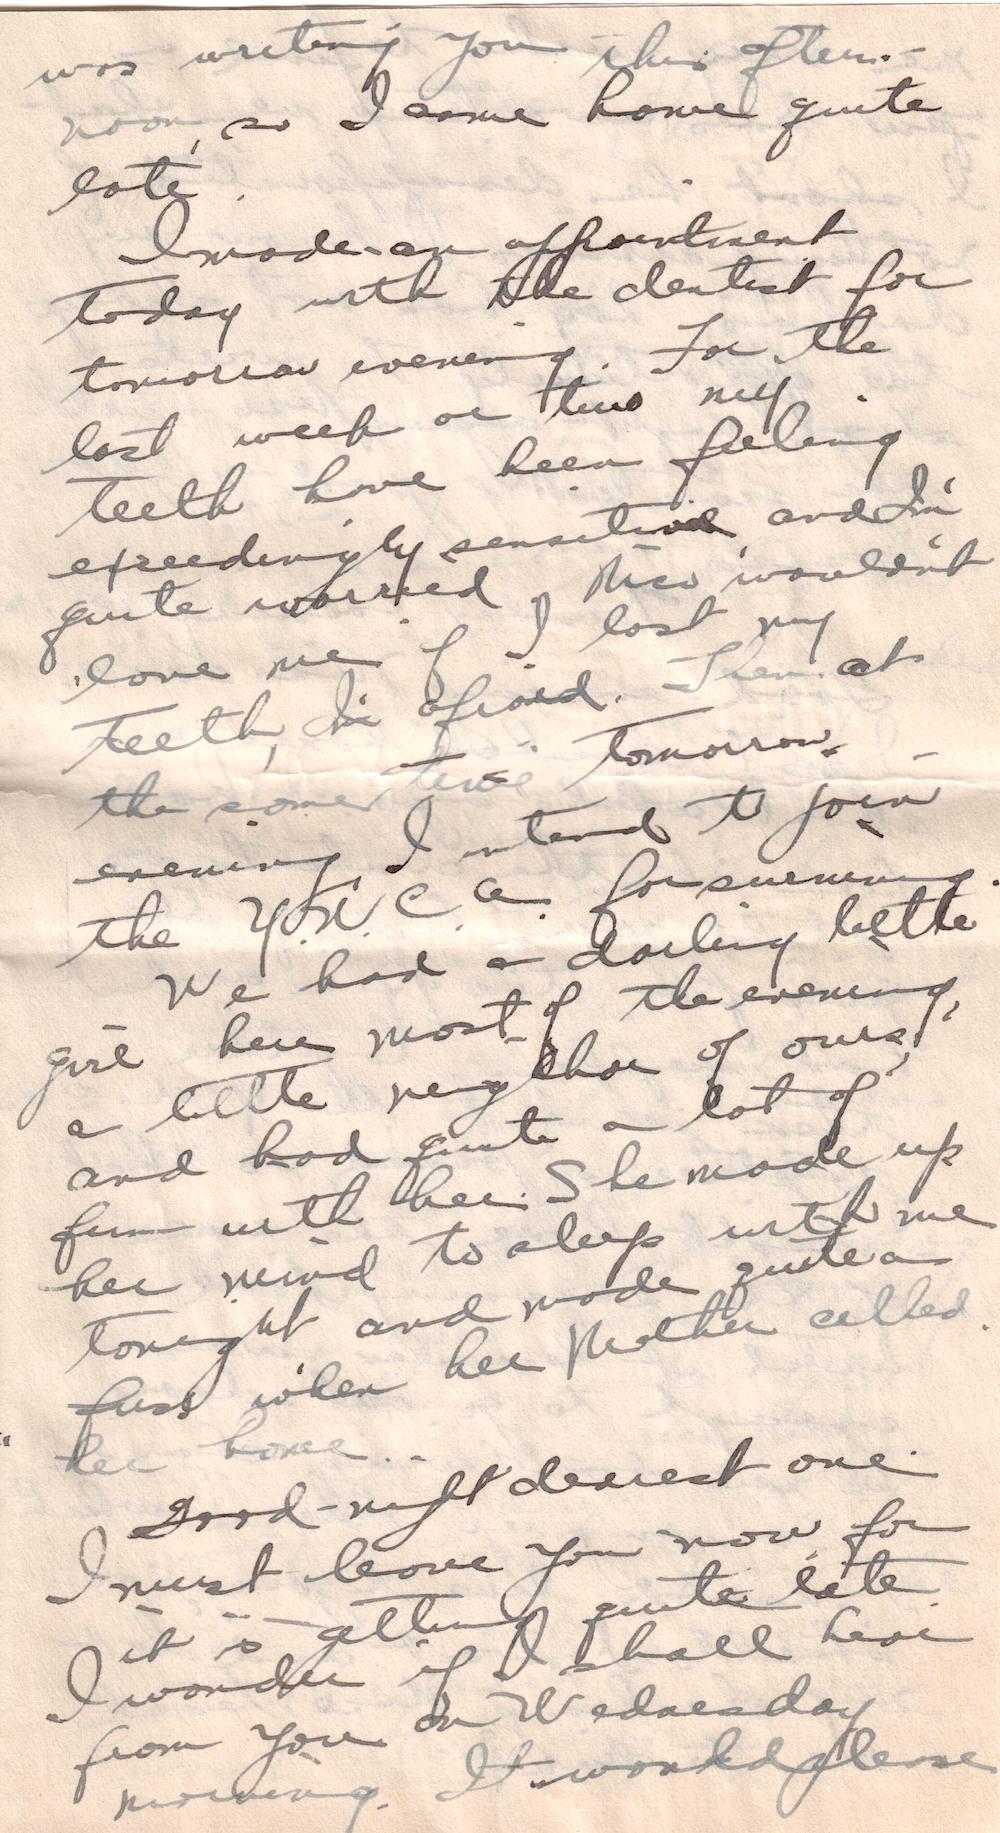 was writing you this after-
noon, so I came home quite
late.
I made an appointment
today with the dentist for
tomorrow evening. For the
last week or two my
teeth have been feeling
exceedingly sensitive and I'm
quite worried, wouldn't
love me if I lost my
teeth, I'm afraid. Then at
the same time tomorrow
evening, I intend to join
the Y.W.C.A. for swimming.
We had a darling little
girl here most of the evening,
a little neighbor of ours,
and had quite a lot of
fun with her. She made up
her mind to sleep with me
tonight and made quite a
fuss when her Mother called
her home..
Good-night dearest one.
I must leave you now for
it is getting quite late.
I wonder if I shall hear
from you on Wednesday
morning. It would please